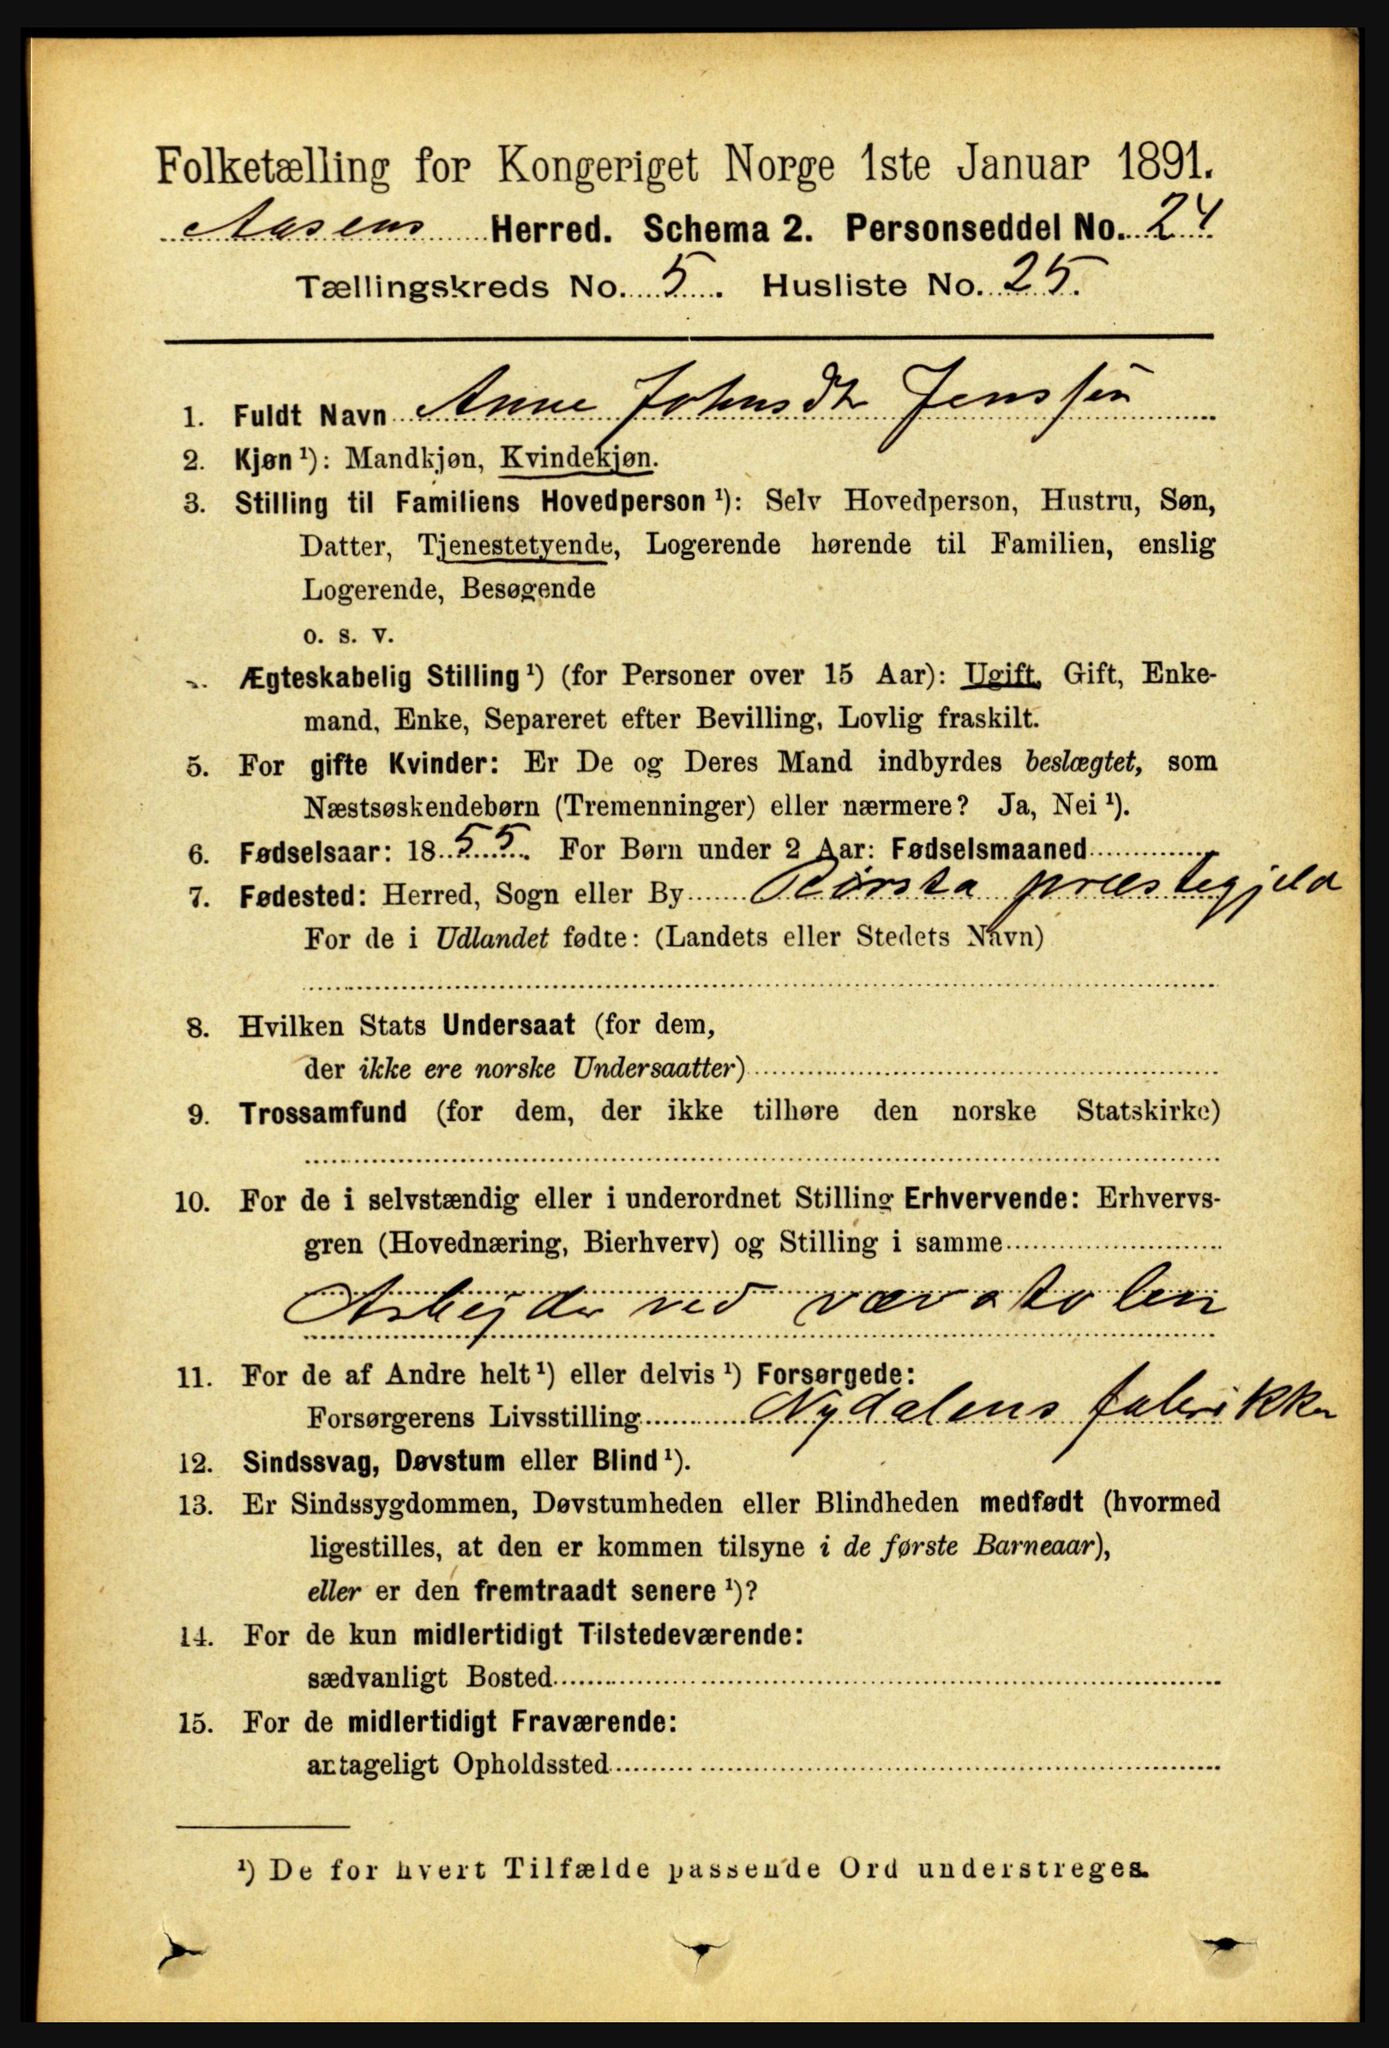 Folketælling for Kongeriget Norge 1ste Januar 1891.
Aasens Herred. Schema 2. Personseddel No. 24
Tællingskreds No. 5. Husliste No. 25.
1. Fuldt Navn Anne Johnsdtr Jenssen
2. Kjøn ¹): Mandkjøn, Kvindekjøn.
3. Stilling til Familiens Hovedperson ¹): Selv Hovedperson, Hustru, Søn,
Datter, Tjenestetyende, Logerende hørende til Familien, enslig
Logerende, Besøgende
o. s. v.
Ægteskabelig Stilling ¹) (for Personer over 15 Aar): Ugift, Gift, Enke-
mand, Enke, Separeret efter Bevilling, Lovlig fraskilt.
5. For gifte Kvinder: Er De og Deres Mand indbyrdes beslægtet, som
Næstsøskendebørn (Tremenninger) eller nærmere? Ja, Nei ¹).
6. Fødselsaar: 1855. For Børn under 2 Aar: Fødselsmaaned
7. Fødested: Herred, Sogn eller By præstegjeld
For de i Udlandet fødte: (Landets eller Stedets Navn)
8. Hvilken Stats Undersaat (for dem,
der ikke ere norske Undersaatter)
9. Trossamfund (for dem, der ikke tilhøre den norske Statskirke)
10. For de i selvstændig eller i underordnet Stilling Erhvervende: Erhvervs-
gren (Hovednæring, Bierhverv) og Stilling i samme
Arbejder ved vævstolen
11. For de af Andre helt ¹) eller delvis ¹) Forsørgede:
Forsørgerens Livsstilling Nydalens fabrikker
12. Sindssvag, Døvstum eller Blind ¹).
13. Er Sindssygdommen, Døvstumheden eller Blindheden medfødt (hvormed
ligestilles, at den er kommen tilsyne i de første Barneaar),
eller er den fremtraadt senere ¹)?
14. For de kun midlertidigt Tilstedeværende:
sædvanligt Bosted
15. For de midlertidigt Fraværende:
antageligt Opholdssted
¹) De for hvert Tilfælde passende Ord understreges.